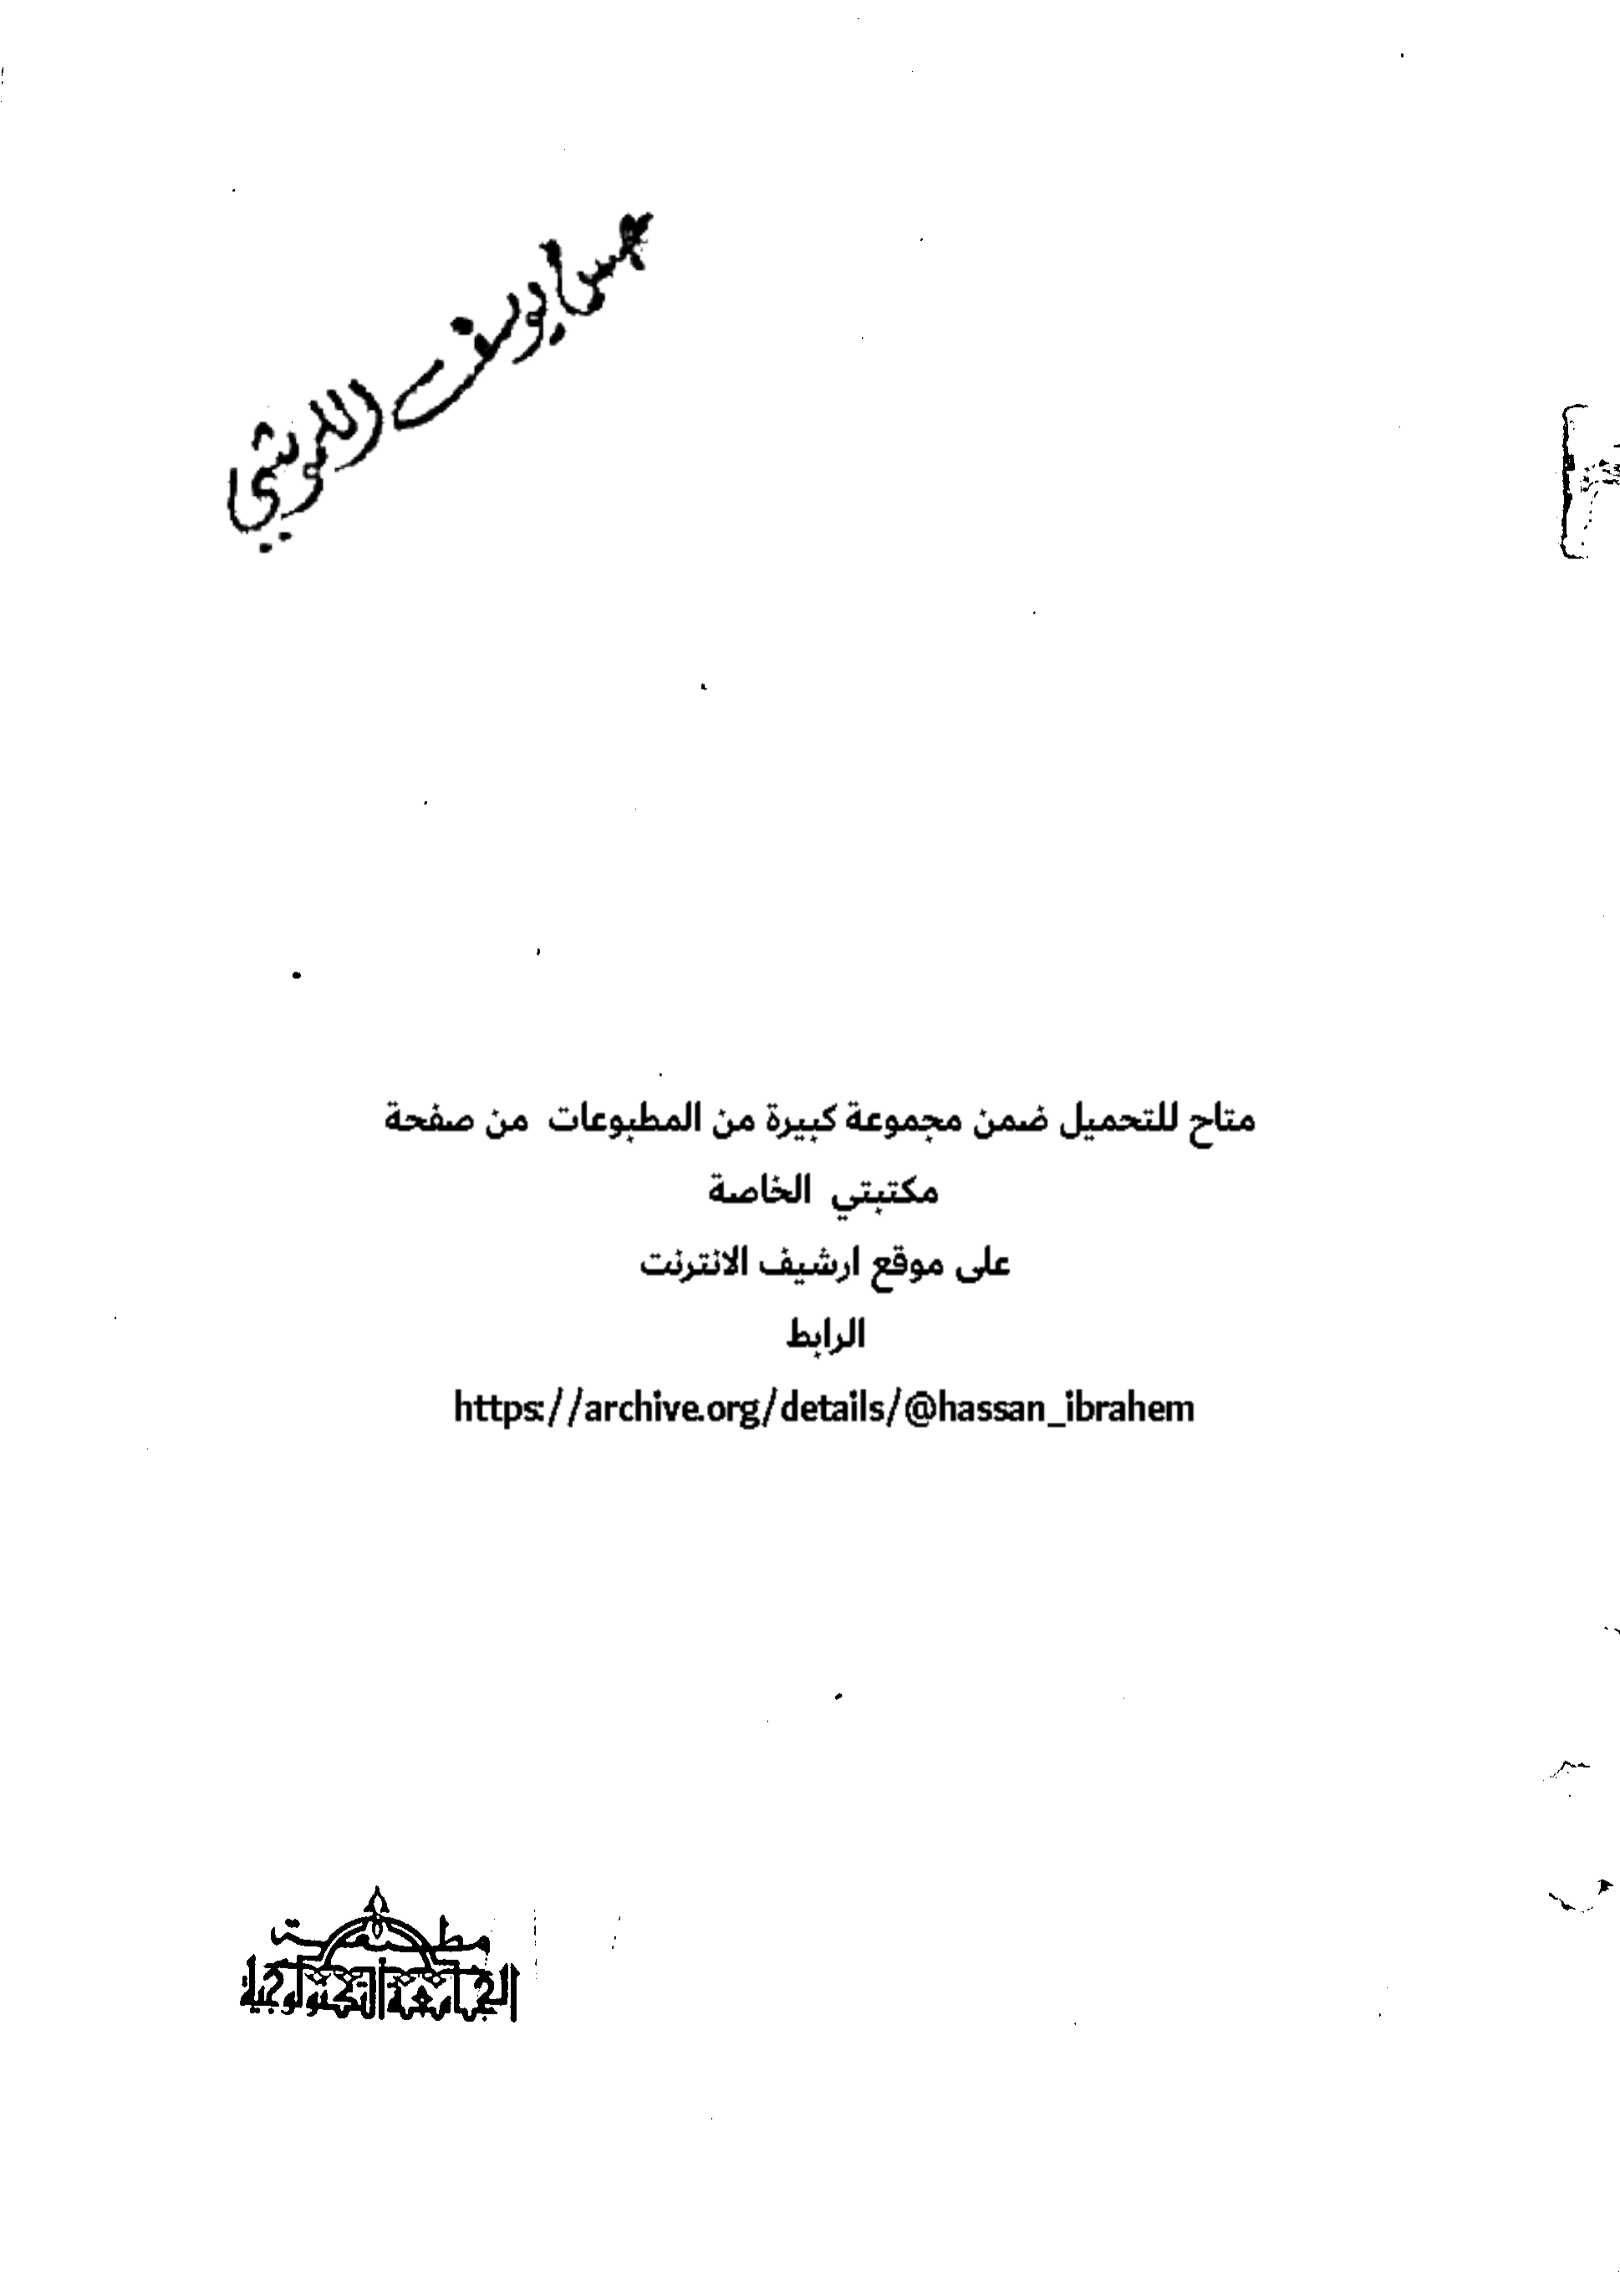 يوسف
متاح للتحميل ضمن مجموعة كبيرة من المطبوعات من صفحة
مكتبتي الخاصة
على موقع ارشيف الانترنت
الرابط
https://archive.org/details/@hassan_ibrahem
مطبعة
الجامعة التكنولوجية